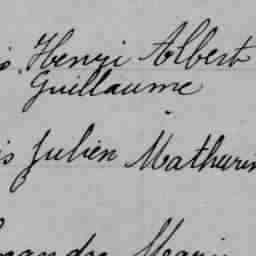 Henri Albert
Guillaume
is Julien Mathurin